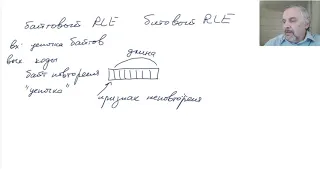 байтовый RLE битовый RLE
вх: цепочка байтов
длина
вых коды
байт повторения
"цепочка"
признак неповторения